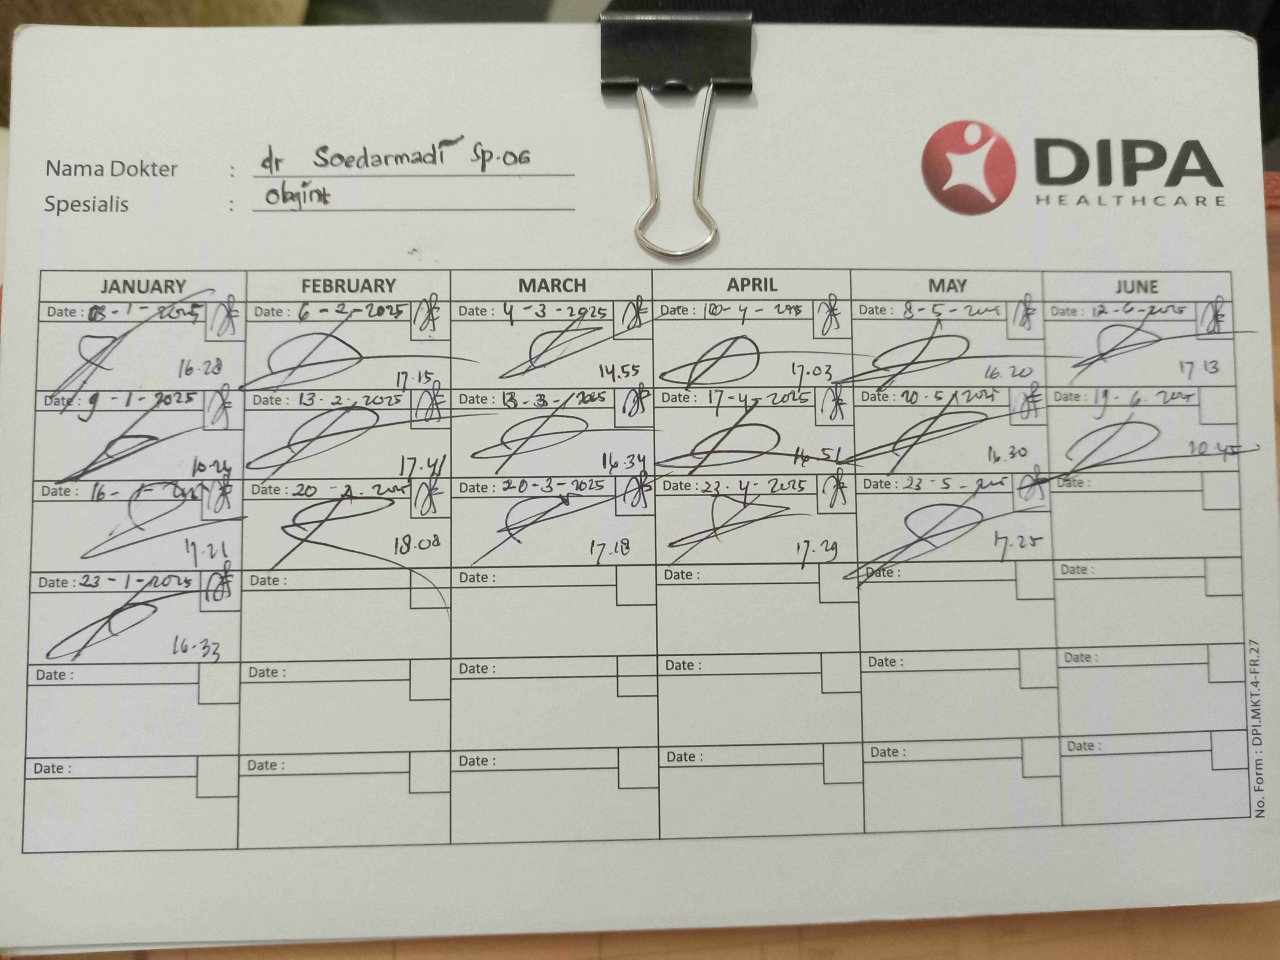 Nama Dokter : dr Soedarmadi Sp.OG
Spesialis : Obgint
DIPA
HEALTHCARE
JANUARY FEBRUARY MARCH APRIL MAY JUNE
Date : 03-1-2025 Date : 6-2-2025 Date : 4-3-2025 Date : 10-4-2025 Date : 8-5-2025 Date : 12-6-2025
16.28 17.15 14.55 17.03 16.20 17.13
Date : 9-1-2025 Date : 13-2-2025 Date : 13-3-2025 Date : 17-4-2025 Date : 20-5-2025 Date : 19-6-2025
17.41 16.34 16.51 16.30
Date : 16-1-2025 Date : 20-2-2025 Date : 20-3-2025 Date : 23-4-2025 Date : 23-5-2025 Date :
17.21 18.08 17.18 17.29 17.25
Date : 23-1-2025 Date : Date : Date : Date : Date :
16.33
Date : Date : Date : Date : Date : Date :
Date : Date : Date : Date : Date : Date :
No. Form : DPI.MKT.4-FR.27